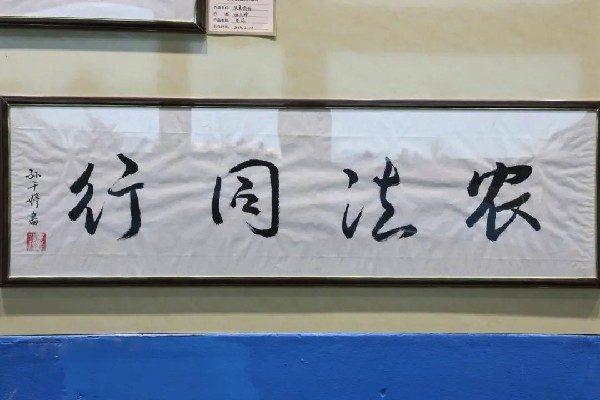 农法同行
孙千婷书